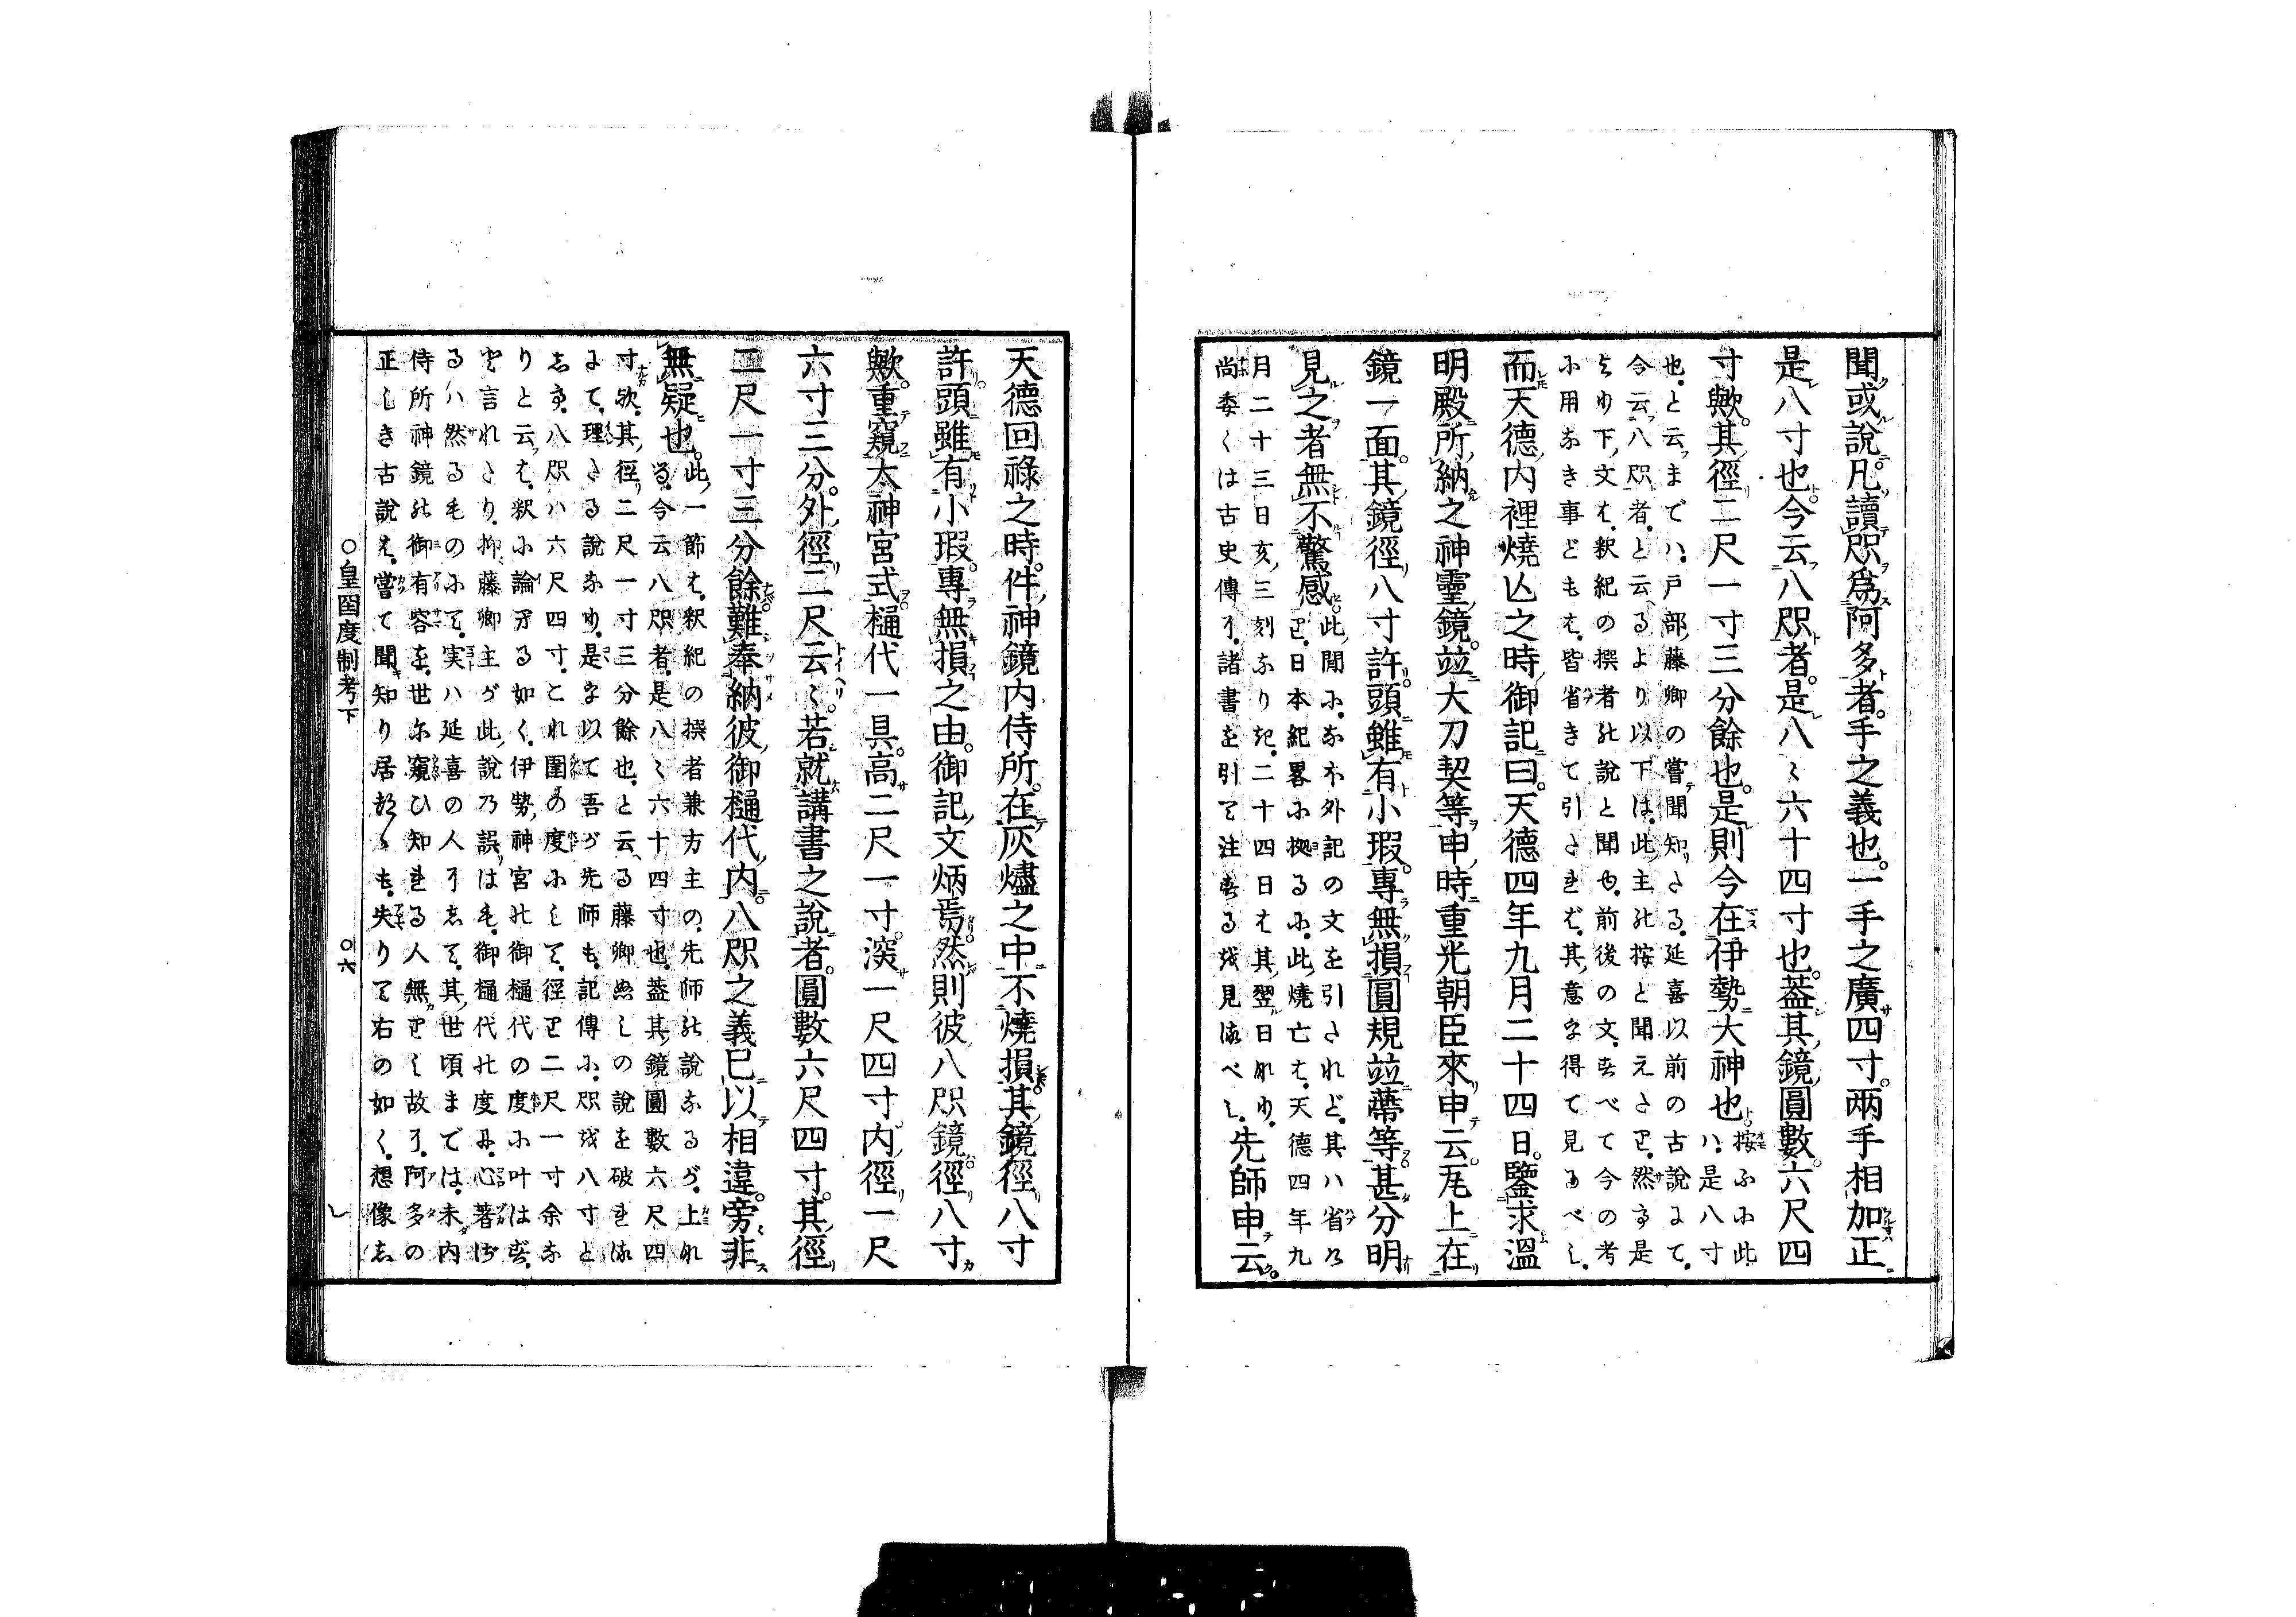 聞或說。凡讀咫爲阿多者。手之義也。一手之廣四寸。兩手相加正
是八寸也。今云八咫者。是八〻六十四寸也。葢其鏡圓數。六尺四
寸歟。其徑二尺一寸三分餘也。是則今在伊勢大神也。按ふに此
ハ是八寸
也。と云まてハ戸部藤卿の嘗聞知さる。延喜以前の古說にて。
今云八咫者。と云るより以下は。此主の按と聞えさり。然るを是
より下文は。釈紀の撰者の說と聞ゆ。前後の文。すべて今の考
に用なき事どもは。皆省きて引されば。其意を得て見るべし。
而天德内裡燒亾之時。御記曰。天德四年九月二十四日。鑒求溫
明殿所納之神靈鏡。並大刀契等申時。重光朝臣來申云。瓦上在
鏡一面。其鏡徑八寸許。頭雖有小瑕。專無損圓規並蔕等甚分明
見之者無不驚感。此間に。なほ外記の文を引されど。其ハ省け
り。日本紀畧に據るに。此燒亡は。天德四年九
月二十三日亥三刻なりき。二十四日は其翌日なり。
尚委くは古史傳に。諸書を引て注せるを見るべし。先師申云。
天德回祿之時。件神鏡内侍所。在灰燼之中不燒損。其鏡徑八寸
許。頭雖有小瑕。專無損之由。御記文炳焉。然則彼八咫鏡徑八寸
歟。重窺太神宮式。樋代一具。高二尺一寸。深一尺四寸。内徑一尺
六寸三分。外徑二尺云〻。若就講書之說者。圓數六尺四寸。其徑
二尺一寸三分餘。難奉納彼御樋代内。八咫之義已以相違。旁非
無疑也。此一節は。釈紀の撰者兼方主の。先師の說なるが。上な
る。今云八咫者。是八〻六十四寸也。葢其鏡圓數六尺四
寸歟。其徑二尺一寸三分餘也。と云る藤卿ぬしの說を破れる
にて。理さる說なり。是を以て吾が先師も。記傳に。咫を八寸と
し給。八咫ハ六尺四寸。これ圍の度にして。徑り二尺一寸余な
りと云は。釈に論する如く。伊勢神宮の御樋代の度に叶はず。
と言れさり。抑藤卿主が此說乃誤は も。御樋代の度に。心著ざ
るハ然るものにて。実ハ延喜の人にして。其世頃までは。未内
侍所神鏡の御有容を。世に窺ひ知れる人無りし故に。阿多の
正しき古說は。嘗て聞知り居 も。失りて右の如く。想像し
○皇國度制考下
○六